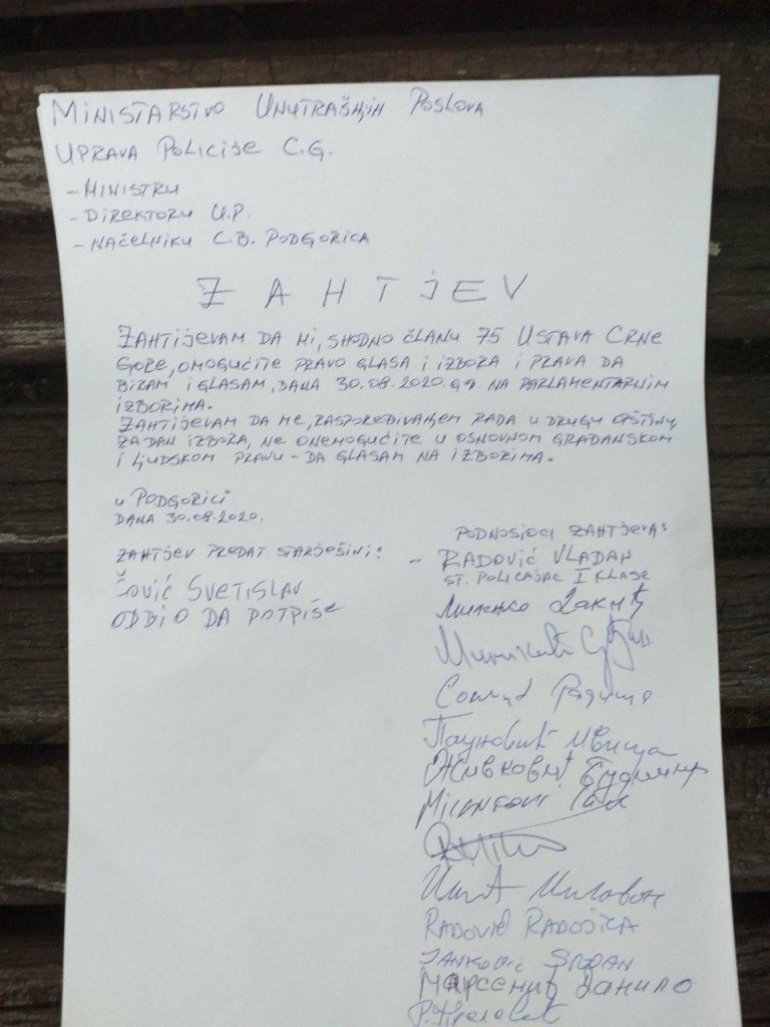 MINISTARSTVO UNUTRAŠNJIH POSLOVA
UPRAVA POLICIJE C.G.
- MINISTRU
- DIREKTORU U.P.
- NAČELNIKU C.B. PODGORICA
ZAHTJEV
ZAHTIJEVAM DA MI, SHODNO ČLANU 75 USTAVA CRNE
GORE, OMOGUĆITE PRAVO GLASA I IZBORA I PRAVA DA
BIRAM I GLASAM, DANA 30.08.2020.GG NA PARLAMENTARNIM
IZBORIMA.
ZAHTIJEVAM DA ME, RASPOREĐIVANJEM RADA U DRUGU OPŠTINU,
ZA DAN IZBORA, NE ONEMOGUĆITE U OSNOVNOM GRAĐANSKOM
I LJUDSKOM PRAVU - DA GLASAM NA IZBORIMA.
U PODGORICI
DANA 30.08.2020.
ZAHTJEV PREDAT STARJEŠINI:
ČOVIĆ SVETISLAV
ODBIO DA POTPIŠE
PODNOSIOCI ZAHTJEVA:
- RADOVIĆ VLADAN
ST. POLICAJAC I KLASE
Миленко
Пауновић Ивица
Живковић
RADOVIĆ RADOŠICA
JANKOVIĆ SRĐAN
МАРСЕНИЋ ДАНИЛО